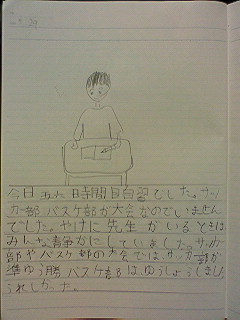 今日五、六時間目自習でした。サッ
カー部バスケ部が大会なのでいません
でした。やけに先生がいるときは
みんな静かにしていました。サッカー
部やバスケ部の大会ではサッカー部が
準ゆう勝バスケ部はゆうしょうしました
うれしかった。